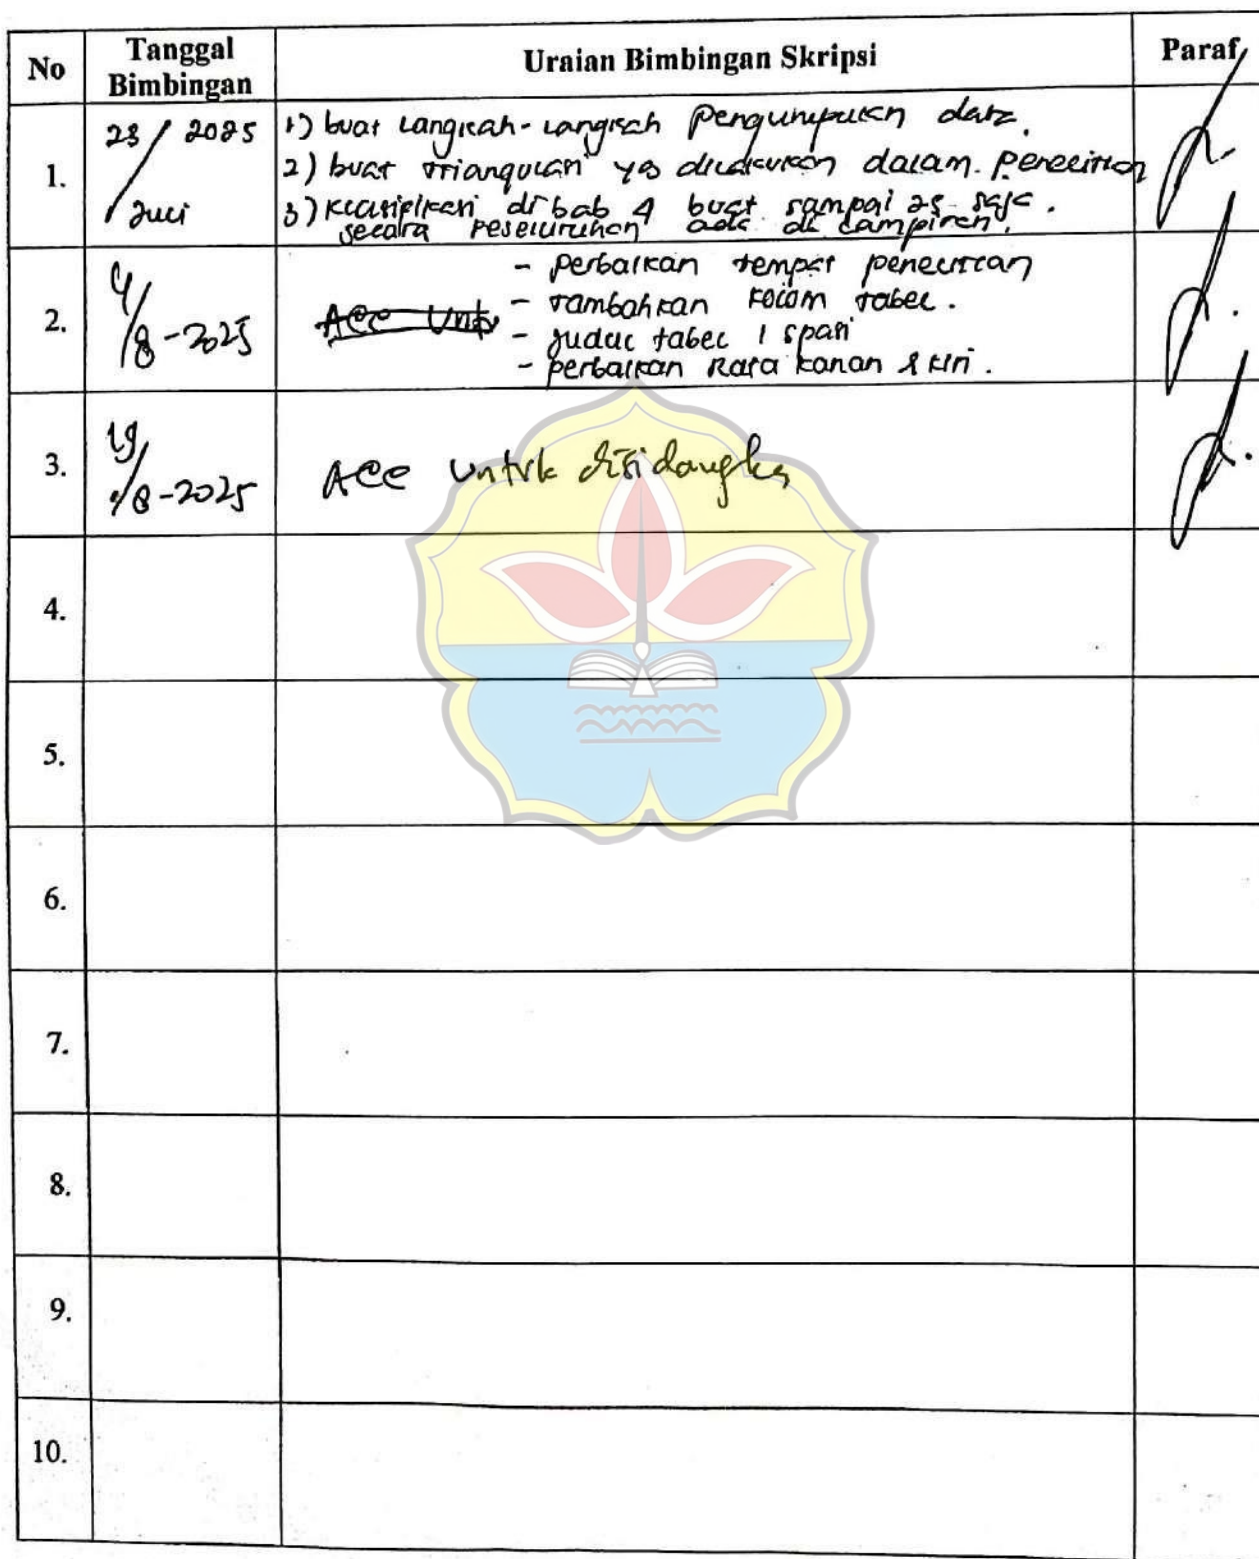 No Tanggal Bimbingan Uraian Bimbingan Skripsi Paraf
1. 23/Juli 2025 1) buat langkah-langkah Pengumpulan data.
2) buat triangulasi yg dilakukan dalam penelitian
3) klasifikasi di bab 4 buat sampai 25 saja.
secara keseluruhan ada di lampiran.
2. 4/8-2025 Acc Unt - perbaikan tempat penelitian
- tambahkan kolom tabel.
- judul tabel 1 spasi
- perbaikan Rata kanan & kiri.
3. 19/8-2025 Acc Untuk disidangka
4.
5.
6.
7.
8.
9.
10.